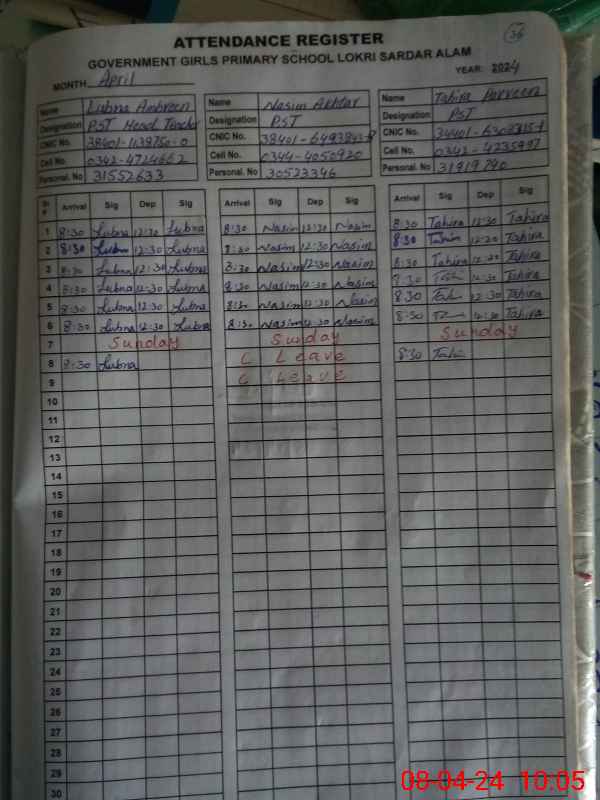 36
ATTENDANCE REGISTER
GOVERNMENT GIRLS PRIMARY SCHOOL LOKRI SARDAR ALAM
MONTH April YEAR: 2024
Name Lubna Ambreen
Designation PST Head Teacher
CNIC No.
Cell No. 0342-4724662
Personal. No 31552633
Name Nasim Akhtar
Designation PST
CNIC No.
Cell No. 0344-4050920
Personal. No 30523346
Name Tahira Parveen
Designation PST
CNIC No.
Cell No.
Personal. No
Sr # Arrival Sig Dep Sig Arrival Sig Dep Sig Arrival Sig Dep Sig
1 8:30 Lubna 12:30 Lubna 8:30 Nasim 12:30 Nasim 8:30 Tahira 12:30 Tahira
2 8:30 Lubna 12:30 Lubna 8:30 Nasim 12:30 Nasim 8:30 Tahira 12:30 Tahira
3 8:30 Lubna 12:30 Lubna 8:30 Nasim 12:30 Nasim 8:30 Tahira 12:30 Tahira
4 8:30 Lubna 12:30 Lubna 8:30 Nasim 12:30 Nasim 8:30 12:30 Tahira
5 8:30 Lubna 12:30 Lubna 8:30 Nasim 12:30 Nasim 8:30 12:30 Tahira
6 8:30 Lubna 12:30 Lubna 8:30 Nasim 12:30 Nasim 8:30 12:30 Tahira
7 Sunday Sunday Sunday
8 8:30 Lubna C Leave 8:30
9 C Leave
10
11
12
13
14
15
16
17
18
19
20
21
22
23
24
25
26
27
28
29
30
08-04-24 10:05